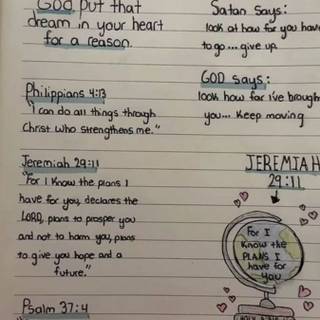 GOD put that
dream in your heart
for a reason.
Philippians 4:13
"I can do all things through
Christ who strengthens me."
Jeremiah 29:11
"For I know the plans I
have for you, declares the
LORD, plans to prosper you
and not to harm you, plans
to give you hope and a
future."
Psalm 37:4
Satan says:
look at how far you have
to go... give up.
GOD says:
look how far I've brough
you... Keep moving
JEREMIAH
29:11
For I
Know the
PLANS I
have for
You
HOLY BIBLE